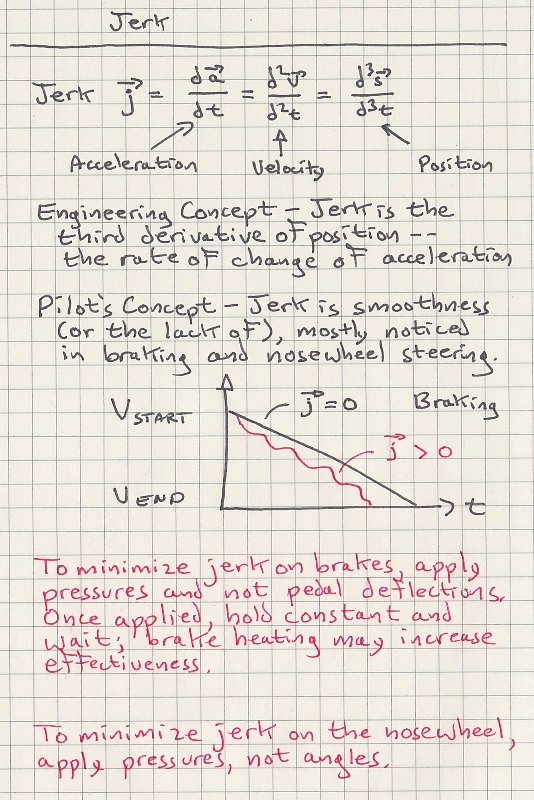 Jerk
Jerk j⃗ = da⃗/dt = d²v⃗/d²t = d³s⃗/d³t
Acceleration Velocity Position
Engineering Concept - Jerk is the
third derivative of position --
the rate of change of acceleration
Pilot's Concept - Jerk is smoothness
(or the lack of), mostly noticed
in braking and nosewheel steering.
V START j⃗ = 0 Braking
j⃗ > 0
V END t
To minimize jerk on brakes, apply
pressures and not pedal deflections.
Once applied, hold constant and
wait; brake heating may increase
effectiveness.
To minimize jerk on the nosewheel,
apply pressures, not angles.